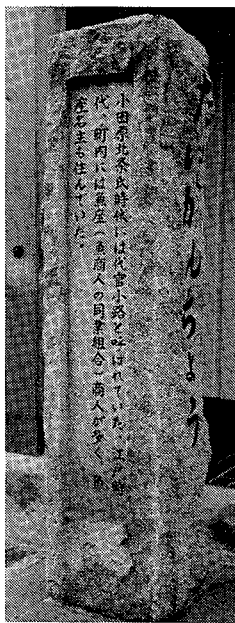 だいかんちょう
小田原北条氏時代には代官小路と呼ばれていた。江戸時
代、町内には魚座(魚商人の同業組合)商人が多く、魚
座名主も住んでいた。